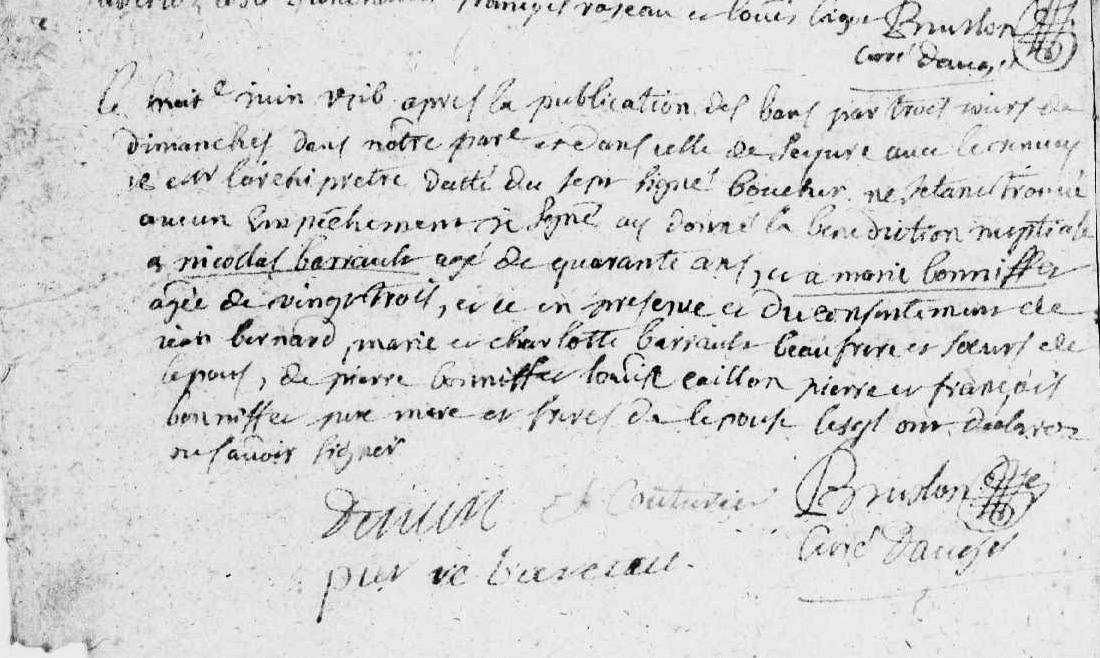 françois raseau et louis Bruslon
curé daugé
le huit juin apres la publication des bans par trois jours de
dimanches dans notre par^e et dans celle de avec le renuoy
de m^r larchipretre datté du sept signé boucher ne setant trouué
aucun Empéchement je sgné ay donné la benediction nuptiale
a nicollas barrault agé de quarante ans, et a marie bonniffet
agée de vingt trois, et ce en presence et du consentement de
jean bernard, marie et charlotte barrault beaufrere et sœurs de
lepous, de pierre bonniffet louise caillon pierre et françois
bonniffet pere mere et freres de lepouse lesq^l ont declarez
ne sauoir signer
Bruslon
pierre curé daugé